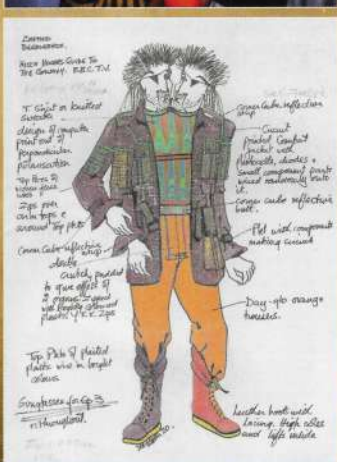 ZAPHOD
BEEBLEBROX.
HITCH HIKERS GUIDE TO
THE GALAXY. B.B.C. T.V.
T Shirt or knitted
sweater
design of computer
print out of
perpendicular
polarisation
Top Pkts of
Zips from
arm tops &
around Top pkts
Corner Cube reflective
strip
double
crutch padded
to give effect of
2 organs
plastic Y.K.K. Zips
Top Pkts of plaited
plastic wire in bright
colours
Sunglasses for Ep 3
throughout.
corner cube reflective
strip
Circuit
printed Combat
jacket with
photocells, diodes &
small component parts
wired randomly onto
it.
corner cube reflective
belt.
Pkt with components
making circuit
Day-glo orange
trousers.
Leather boots with
lacing. High soles
and lifts inside